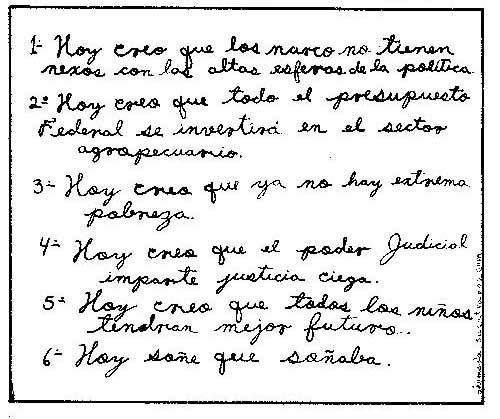 1- Hoy creo que los narco no tienen
nexos con las altas esferas de la política
2- Hoy creo que todo el presupuesto
Federal se invertirá en el sector
agropecuario.
3- Hoy creo que ya no hay extrema
pobreza.
4- Hoy creo que el poder Judicial
imparte justicia ciega.
5- Hoy creo que todos los niños
tendrian mejor futuro..
6- Hoy soñe que soñaba.